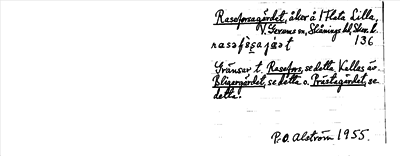 Raseforsagärdet, åker å 1 Flata Lilla,
V. Gerums sn, Skånings hd, Skar. l.
136
Gränsar t. Rasefors, se detta. Kallas äv.
Bligergärdet, se detta o. Prästagärdet, se
detta.
P.O. Alström 1955.